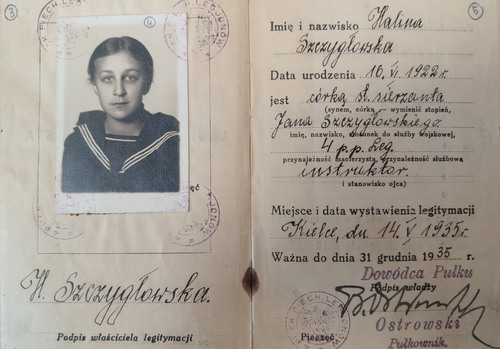 3
4
PIECH. LEG
H. Szczygłowska.
Podpis właściciela legitymacji
5
Imię i nazwisko Halina
Szczygłowska
Data urodzenia 16. VI. 1922r.
jest córką st. sierżanta
(synem, córką — wymienić stopień,
Jana Szczygłowskiego
imię, nazwisko, stosunek do służby wojskowej,
4 p.p. Leg.
przynależność macierzysta, przynależność służbowa
instruktor.
i stanowisko ojca)
Miejsce i data wystawienia legitymacji
Kielce, dn. 14. V 1935r.
Ważna do dnia 31 grudnia 1935r.
Dowódca Pułku
Podpis władzy
Ostrowski
Pieczęć
Pułkownik.